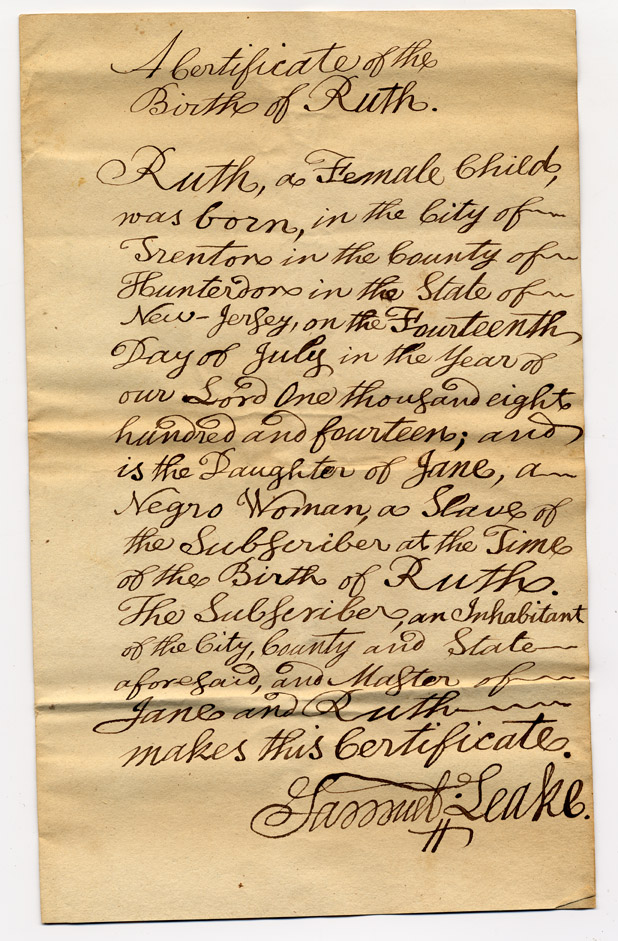 A Certificate of the
Birth of Ruth.
Ruth, a Female Child,
was born, in the City of
Trenton in the County of
Hunterdon in the State of
New-Jersey, on the Fourteenth
Day of July in the Year of
our Lord One thousand eight
hundred and fourteen; and
is the Daughter of Jane, a
Negro Woman, a Slave of
the Subscriber at the Time
of the Birth of Ruth.
The Subscriber, an Inhabitant
of the City, County and State
aforesaid, and Master of
Jane and Ruth
makes this Certificate.
Samuel Leake.